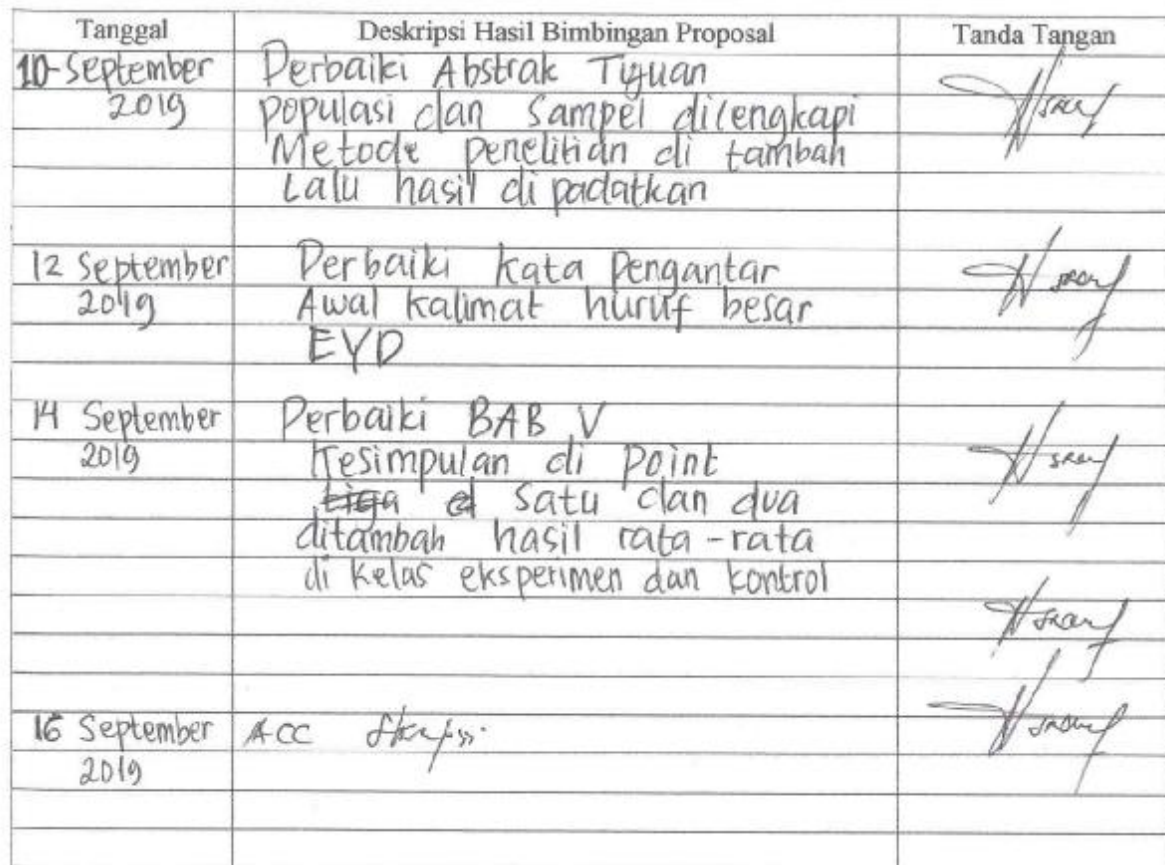 Tanggal Deskripsi Hasil Bimbingan Proposal Tanda Tangan
10-September Perbaiki Abstrak Tujuan
2019 populasi dan Sampel dilengkapi
Metode penelitian di tambah
Lalu hasil di padatkan
12 September Perbaiki Kata Pengantar
2019 Awal Kalimat huruf besar
EYD
14 September Perbaiki BAB V
2019 Kesimpulan di Point
tiga d satu dan dua
ditambah hasil rata-rata
di Kelas eksperimen dan kontrol
16 September ACC Skripsi
2019